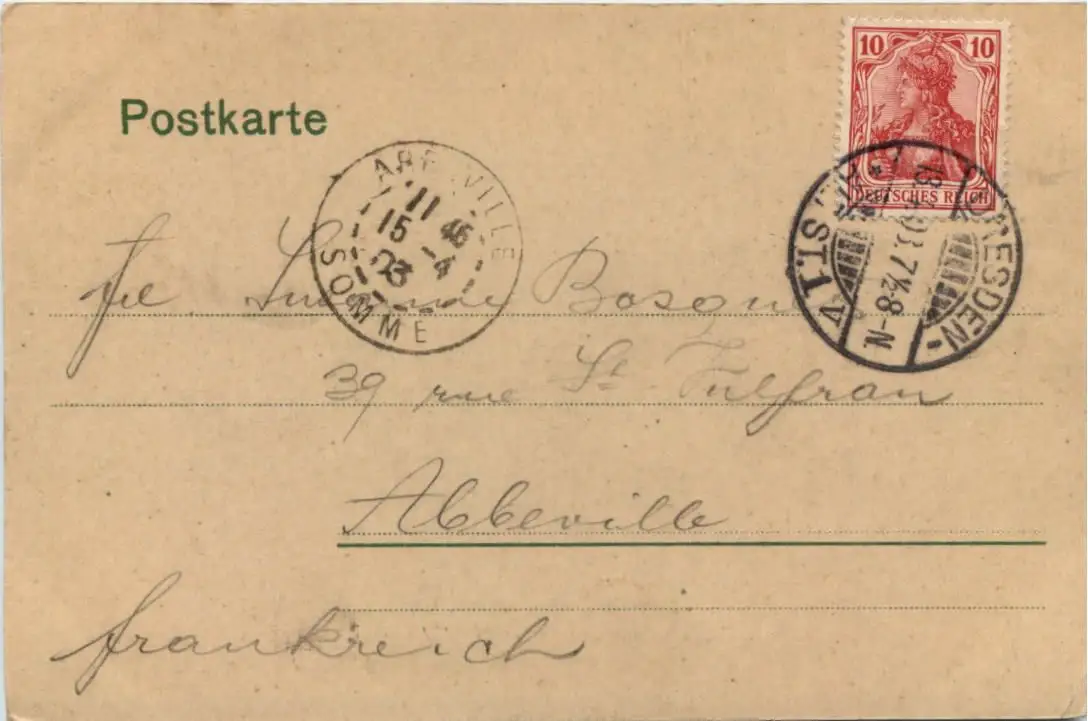 Postkarte
10 10
DEUTSCHES REICH
ABBEVILLE
11 45
15 -4
03
SOMME
DRESDEN-
7½8-N.
Bosque
39 rue St Vulfran
Abbeville
Frankreich